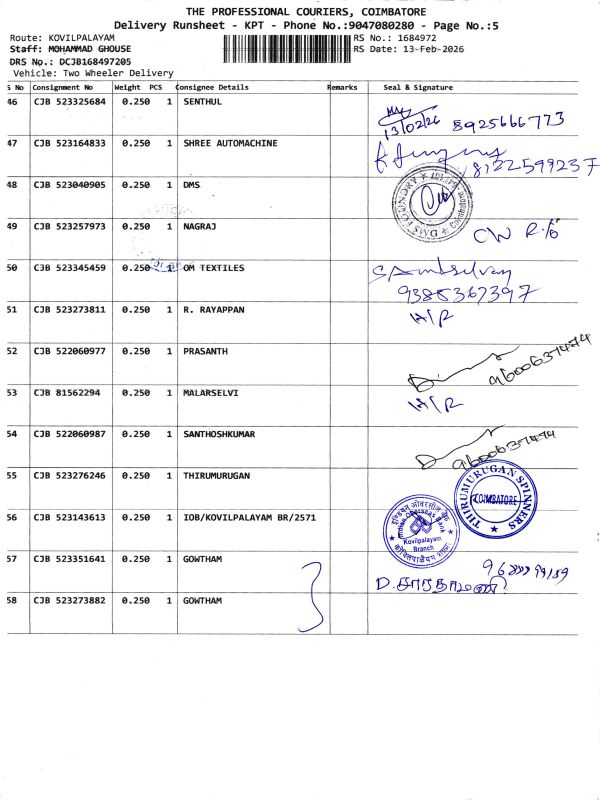 THE PROFESSIONAL COURIERS, COIMBATORE
Delivery Runsheet - KPT - Phone No.:9047080280 - Page No.:5
Route: KOVILPALAYAM RS No.: 1684972
Staff: MOHAMMAD GHOUSE RS Date: 13-Feb-2026
DRS No.: DCJB168497205
Vehicle: Two Wheeler Delivery
S No Consignment No Weight PCS Consignee Details Remarks Seal & Signature
46 CJB 523325684 0.250 1 SENTHUL
13/02/26 8925666773
47 CJB 523164833 0.250 1 SHREE AUTOMACHINE
8122599237
48 CJB 523040905 0.250 1 DMS
DMS FOUNDRY
49 CJB 523257973 0.250 1 NAGRAJ
50 CJB 523345459 0.250 1 OM TEXTILES
9385367397
51 CJB 523273811 0.250 1 R. RAYAPPAN H/R
52 CJB 522060977 0.250 1 PRASANTH
53 CJB 81562294 0.250 1 MALARSELVI H/R
54 CJB 522060987 0.250 1 SANTHOSHKUMAR
55 CJB 523276246 0.250 1 THIRUMURUGAN
THIRUMURUGAN SPINNERS
COIMBATORE
56 CJB 523143613 0.250 1 IOB/KOVILPALAYAM BR/2571
इण्डियन ओवरसीज़ बैंक
Indian Overseas Bank
Kovilpalayam
Branch
57 CJB 523351641 0.250 1 GOWTHAM
58 CJB 523273882 0.250 1 GOWTHAM